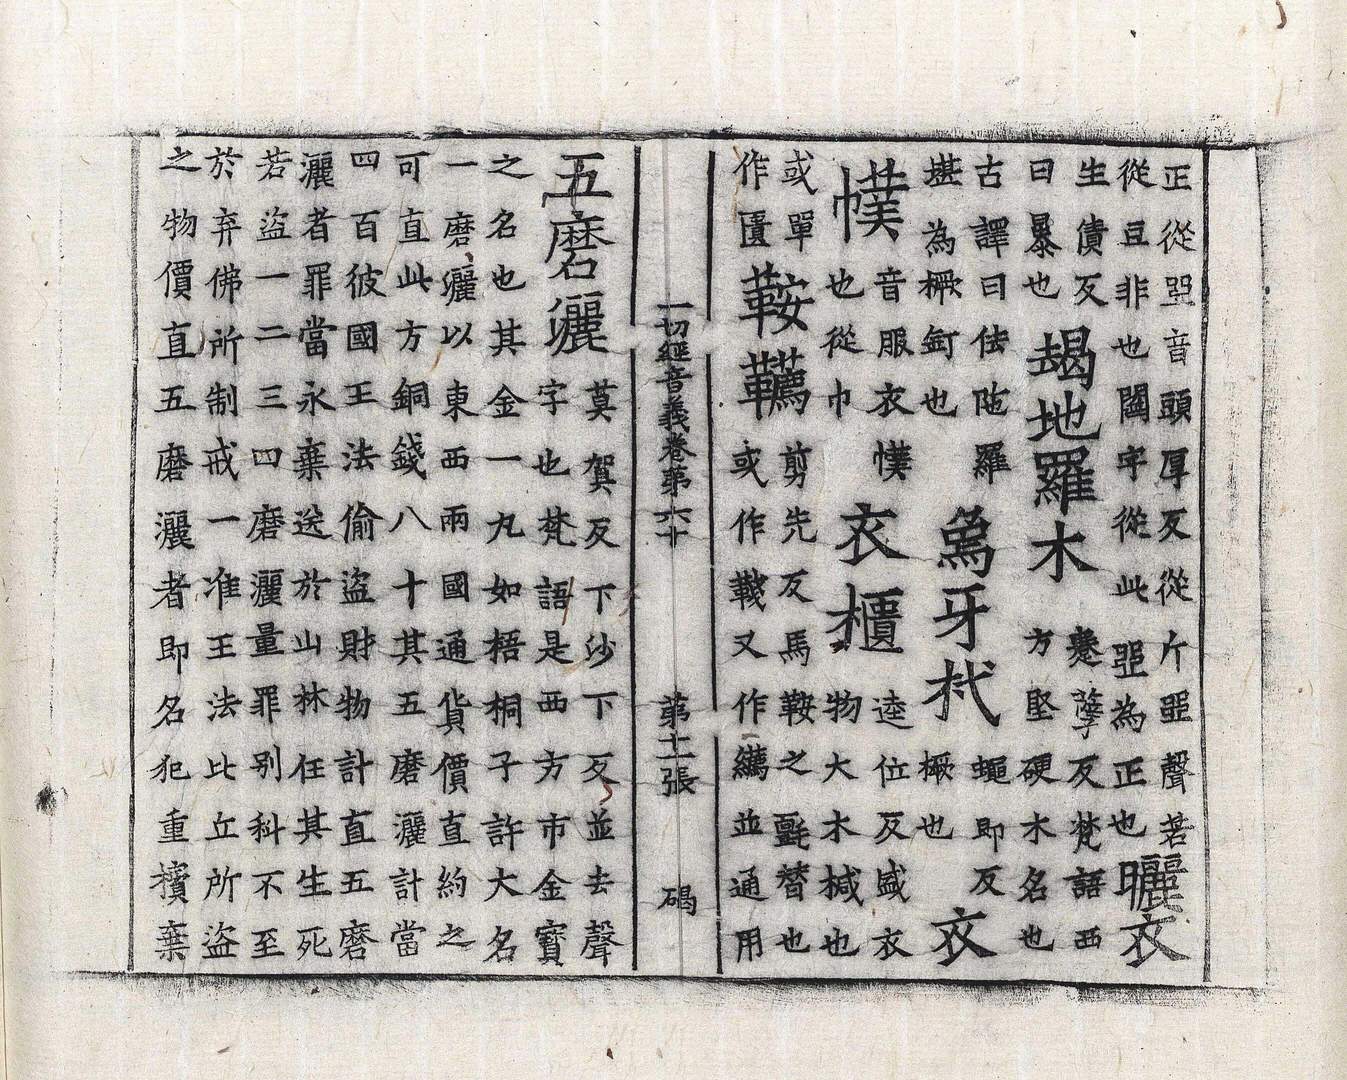 正從㽎音頭厚反從斤㽎聲若
從豆非也闘字從此㽎為正也
曬衣
生債反
曰暴也
朅地羅木
蹇孽反梵語西
方堅硬木名也
古譯曰佉陁羅
堪為橛釘也
爲牙杙
蠅即反
橛也
衣
幞
音服衣幞
也從巾
衣櫃
逵位反盛衣
物大木椷也
或單
作匱
鞍韉
剪先反馬鞍之氈替也
或作韉又作韉並通用
一切經音義卷第六十 第十一張 碣
五磨灑
莫賀反下沙下反並去聲
字也梵語是西方市金寶
之名也其金一丸如梧桐子許大名
一磨灑以東西兩國通貨價直約之
可直此方銅錢八十其五磨灑計當
四百彼國王法偷盜財物計直五磨
灑者罪當永棄送於山林任其生死
若盜一二三四磨灑量罪別科不至
於弃佛所制戒一准王法比丘所盜
之物價直五磨灑者即名犯重擯棄